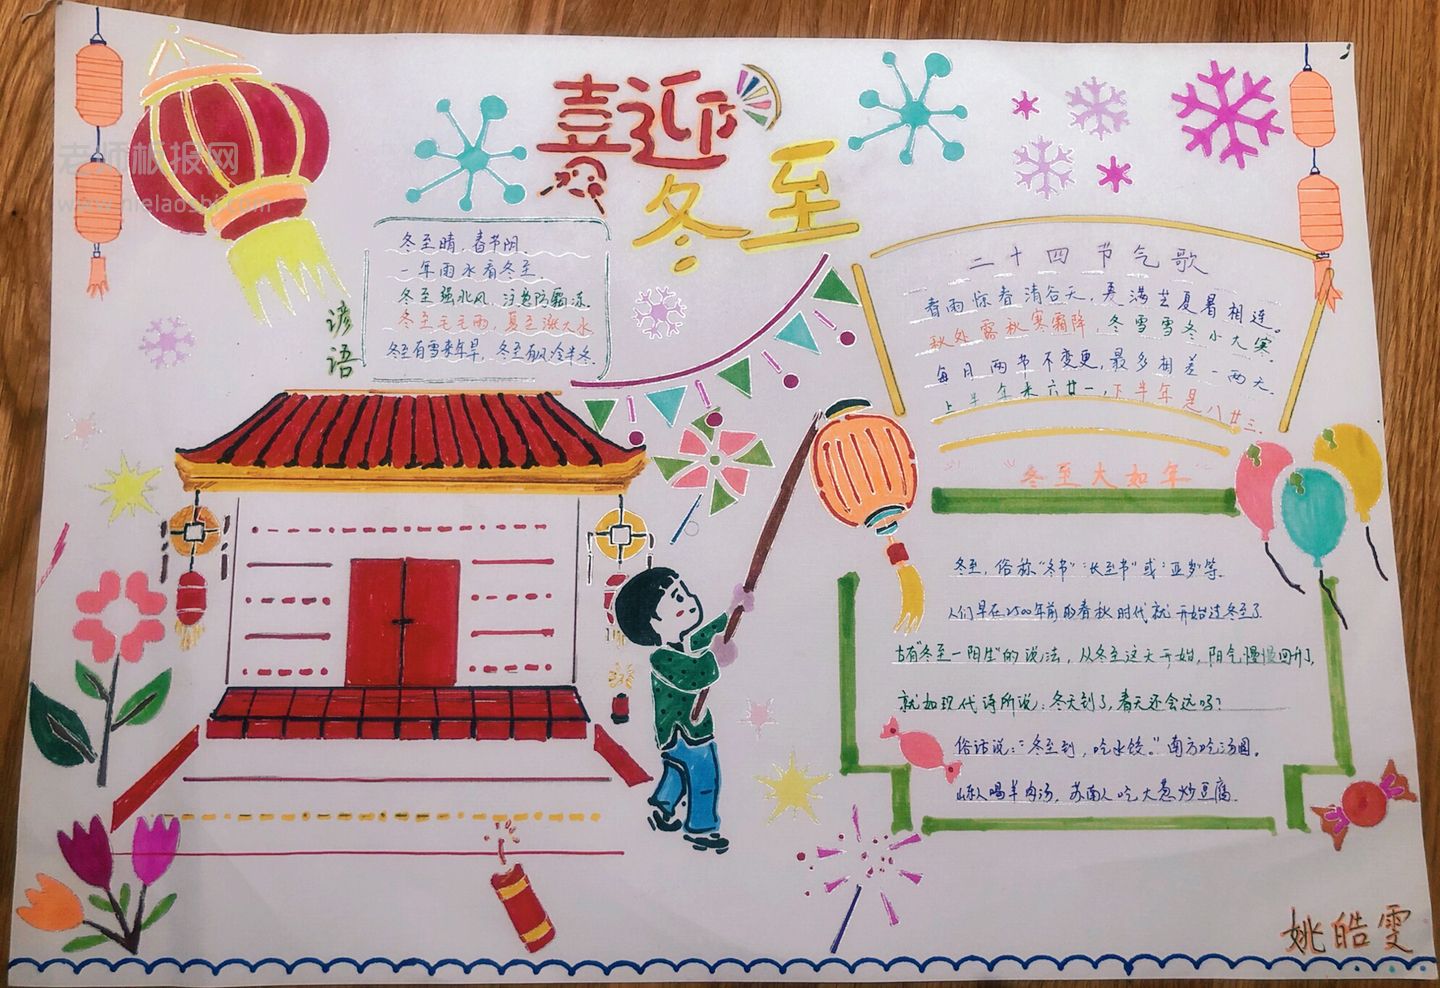 老师板报网
喜迎
冬至
谚语
冬至晴,春节阴。
一年雨水看冬至。
冬至强北风,注意防霜冻。
冬至毛毛雨,夏至涨大水
冬至有雪来年旱,冬至有风冷半冬
二十四节气歌
春雨惊春清谷天,夏满芒夏暑相连。
秋处露秋寒霜降,冬雪雪冬小大寒
每月两节不变更,最多相差一两天
上半年来六廿一,下半年是八廿三.
“冬至大如年”
冬至,俗称“冬节”“长至节”或“亚岁”等.
人们早在2500年前的春秋时代就开始过冬至了
古有“冬至一阳生”的说法,从冬至这天开始,阳气慢慢回升了,
就如现代诗所说:冬天到了,春天还会远吗?
俗话说:“冬至到,吃水饺。”南方吃汤圆。
山东人喝羊肉汤,苏南人吃大葱炒豆腐.
姚皓雯